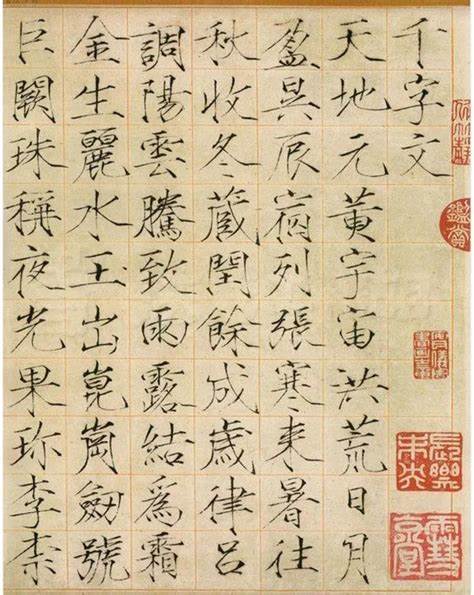 千字文
天地元黃宇宙洪荒日月
盈昃辰宿列張寒来暑往
秋收冬藏閏餘成歲律呂
調陽雲騰致雨露結爲霜
金生麗水玉出崑崗劒號
巨闕珠稱夜光果珍李柰
長樂未央